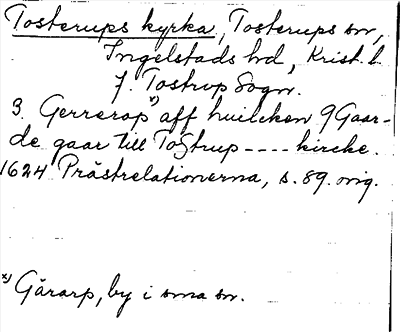 Tosterups kyrka, Tosterups sn,
Ingelstads hd, Krist. l.
7. Tostrup Sogn.
3. Gerrerop x) aff huilcken 9 Gaar-
de gaar till Tostrup ---- kircke.
1624 Prästrelationerna, s. 89. orig.
x) Gärarp, by i sma sn.